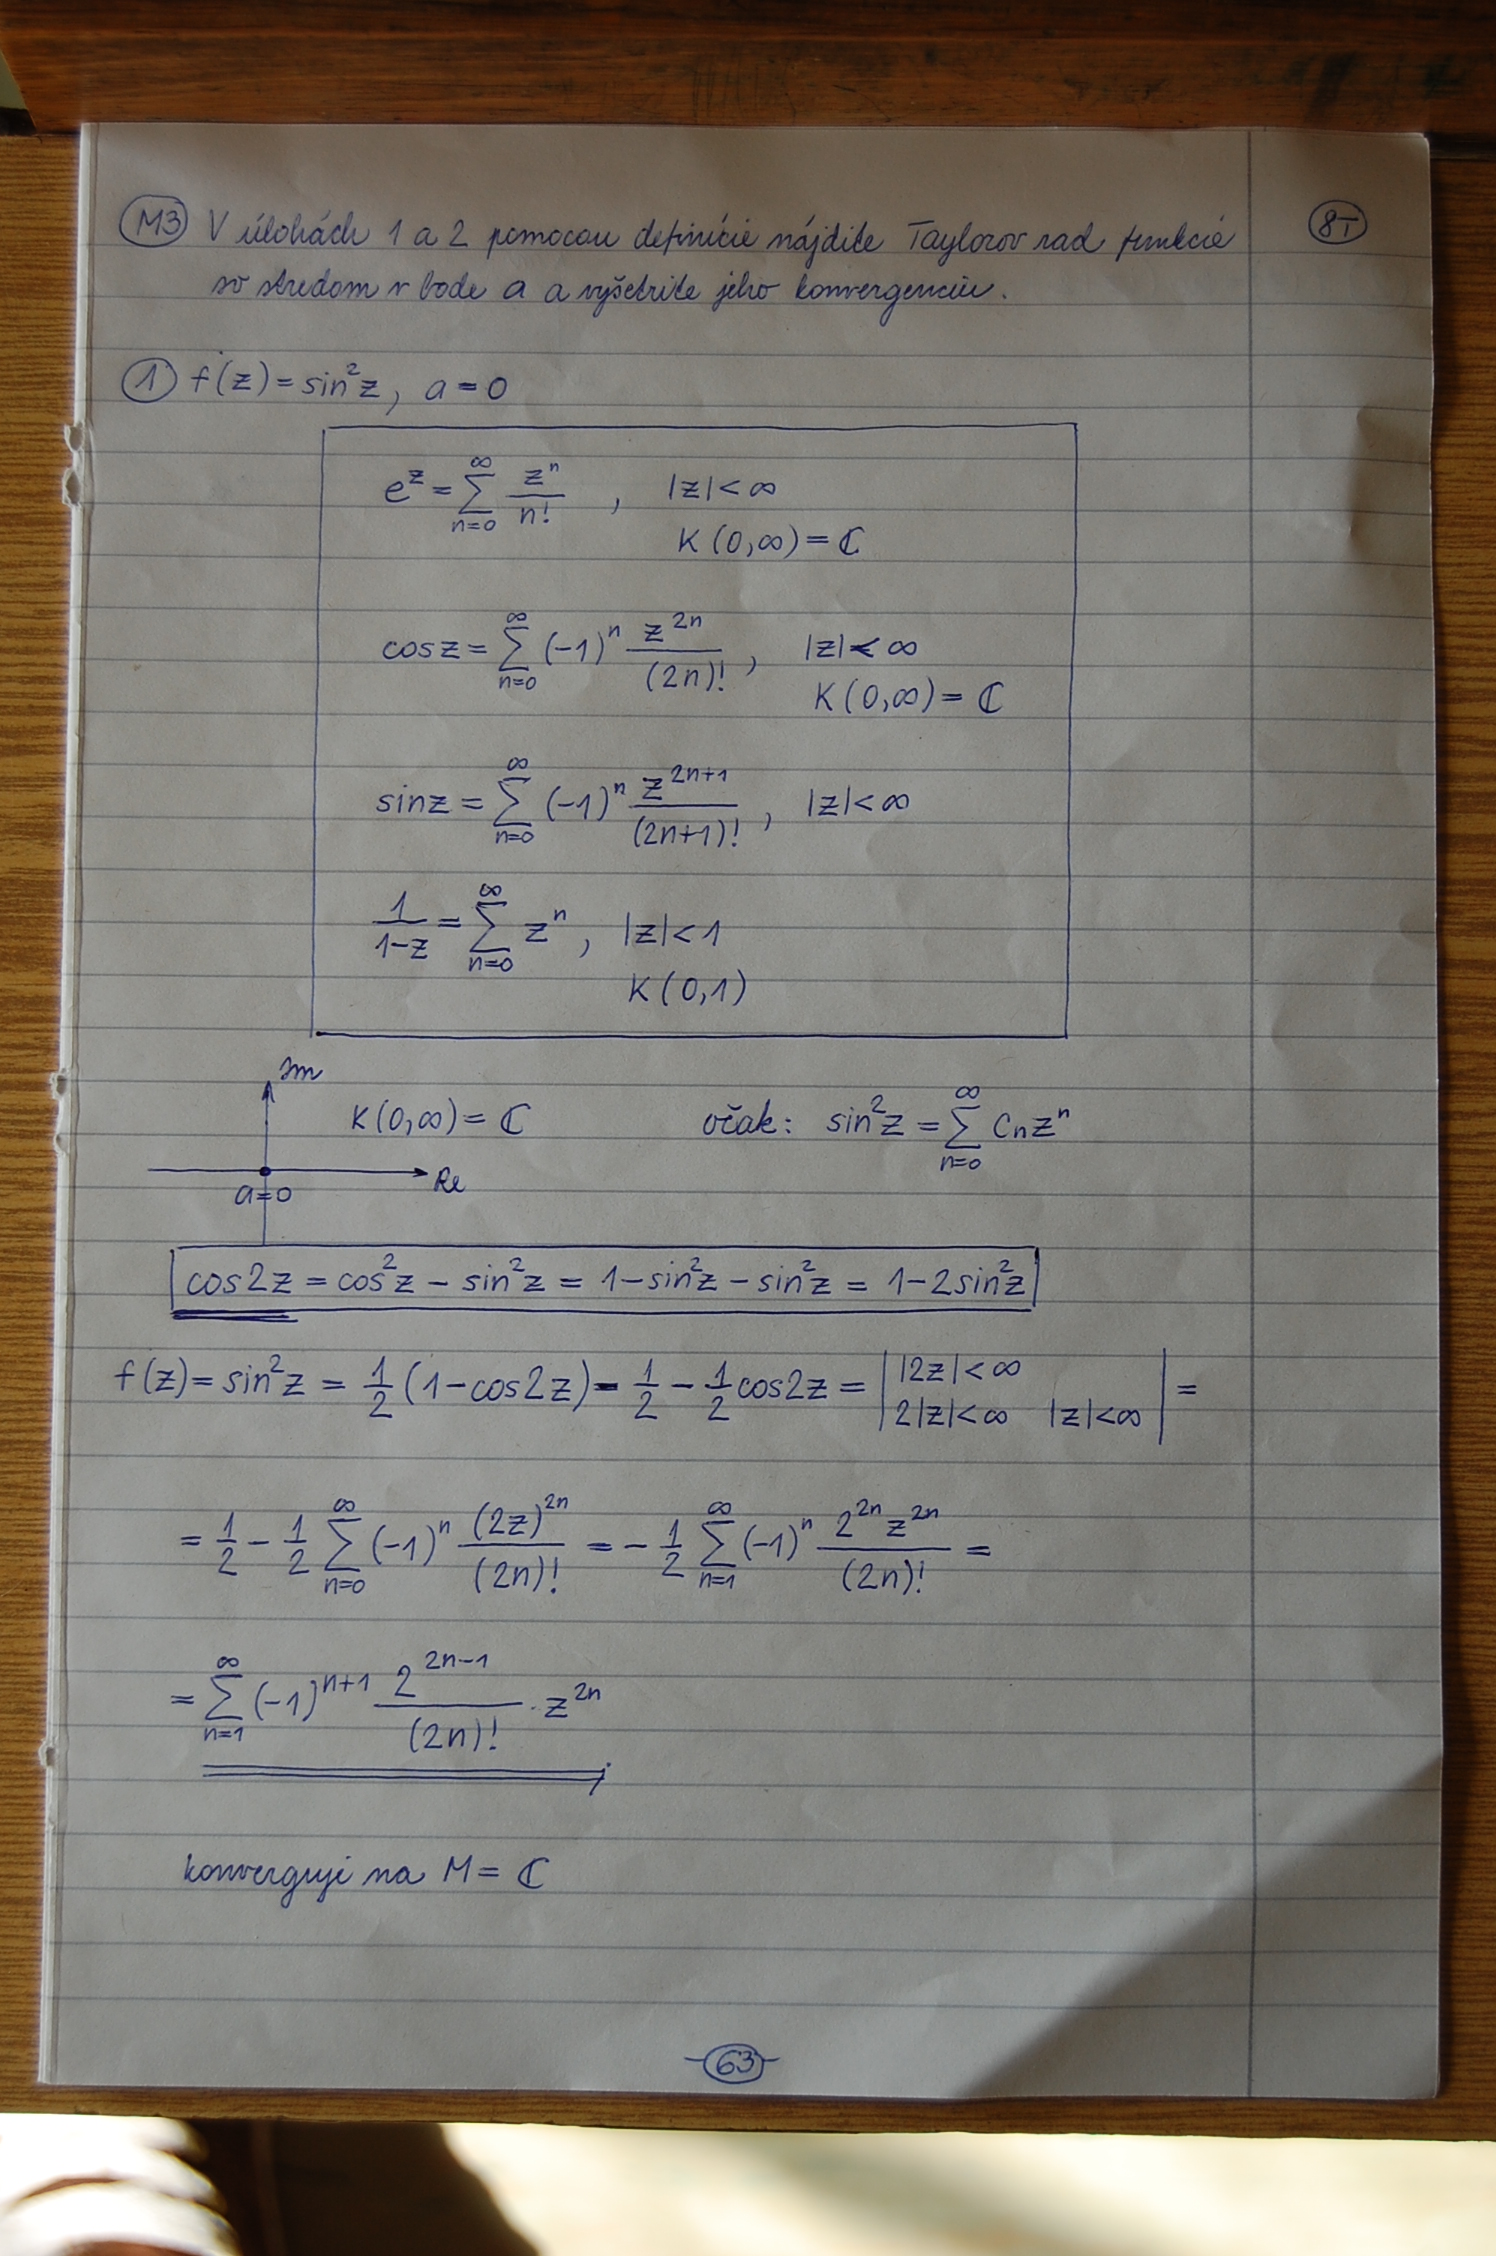 M3 V úlohách 1 a 2 pomocou definície nájdite Taylorov rad funkcie 8T
so stredom v bode a a vyšetrite jeho konvergenciu.
1 f(z) = sin²z, a = 0
e^z = ∑_{n=0}^{∞} z^n/n! , |z| < ∞
K(0,∞) = ℂ
cos z = ∑_{n=0}^{∞} (-1)^n z^{2n}/(2n)! , |z| < ∞
K(0,∞) = ℂ
sin z = ∑_{n=0}^{∞} (-1)^n z^{2n+1}/(2n+1)! , |z| < ∞
1/(1-z) = ∑_{n=0}^{∞} z^n , |z| < 1
K(0,1)
Im
K(0,∞) = ℂ očak: sin²z = ∑_{n=0}^{∞} c_n z^n
Re
a=0
cos2z = cos²z - sin²z = 1 - sin²z - sin²z = 1 - 2sin²z
f(z) = sin²z = 1/2 (1 - cos2z) = 1/2 - 1/2 cos2z = | |2z| < ∞ 2|z| < ∞ |z| < ∞ | =
= 1/2 - 1/2 ∑_{n=0}^{∞} (-1)^n (2z)^{2n}/(2n)! = - 1/2 ∑_{n=1}^{∞} (-1)^n 2^{2n} z^{2n}/(2n)! =
= ∑_{n=1}^{∞} (-1)^{n+1} 2^{2n-1}/(2n)! · z^{2n}
konverguje na M = ℂ
-63-